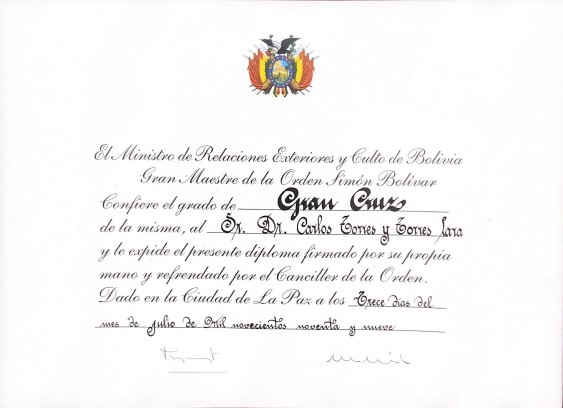 El Ministro de Relaciones Exteriores y Culto de Bolivia
Gran Maestre de la Orden Simón Bolívar
Confiere el grado de Gran Cruz
de la misma, al Sr. Dr. Carlos Torres y Torres Lara
y le expide el presente diploma firmado por su propia
mano y refrendado por el Canciller de la Orden.
Dado en la Ciudad de La Paz a los Trece días del
mes de Julio de Mil novecientos noventa y nueve